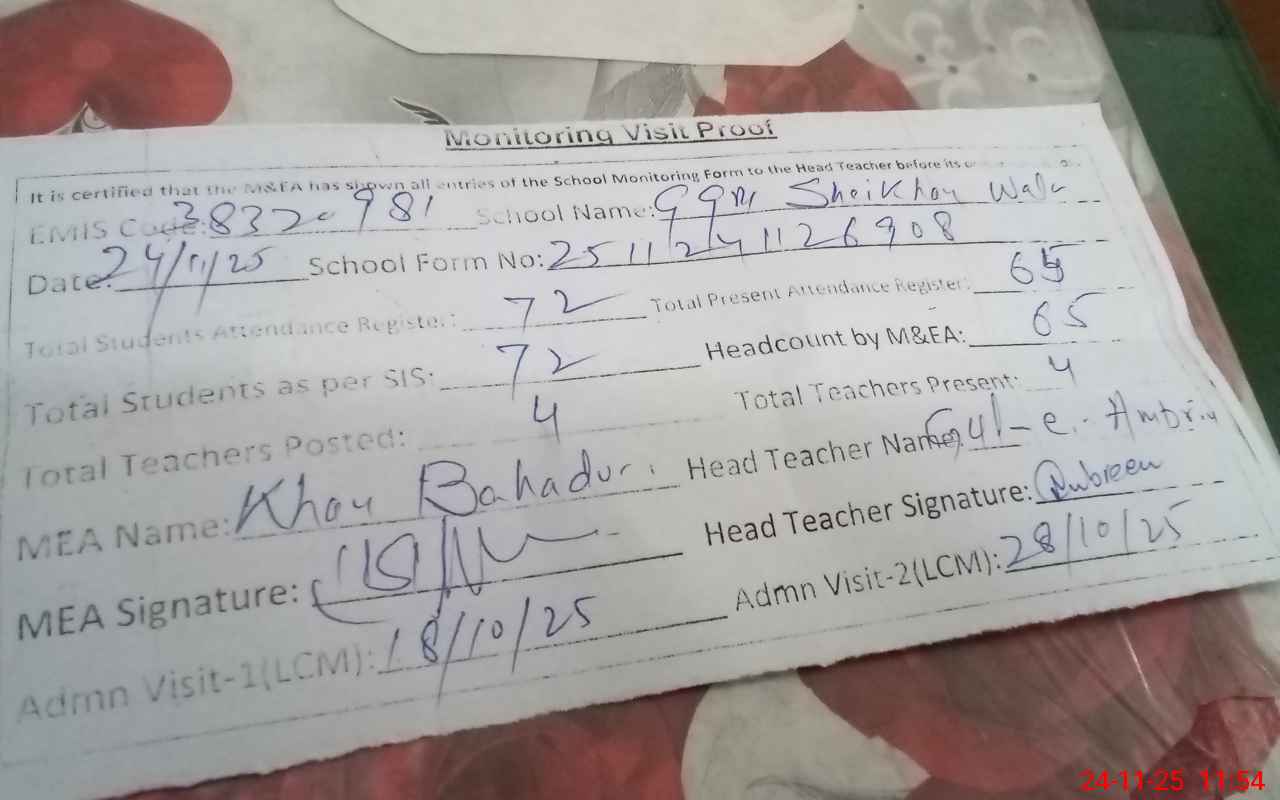 Monitoring Visit Proof
It is certified that the M&EA has shown all entries of the School Monitoring Form to the Head Teacher before its
EMIS Code: 38320981 School Name: GGPS Sheikhan Wala
Date: 24/11/25 School Form No: 2511241126908
Total Students Attendance Register: 72 Total Present Attendance Register: 65
Total Students as per SIS: 72 Headcount by M&EA: 65
Total Teachers Posted: 4 Total Teachers Present: 4
MEA Name: Khan Bahadur Head Teacher Name: Gul-e-Ambrin
MEA Signature: Head Teacher Signature: Ambreen
Admn Visit-1(LCM): 18/10/25 Admn Visit-2(LCM): 28/10/25
24-11-25 11:54